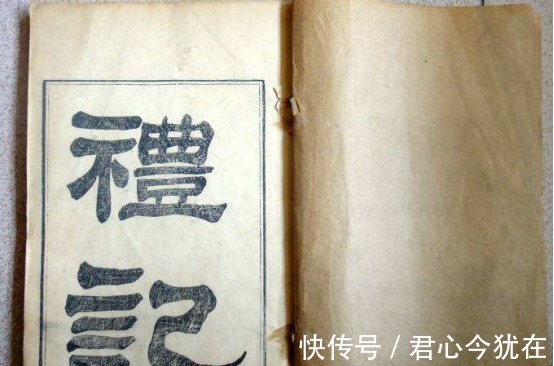 禮
記
快传号 / 君心今犹在